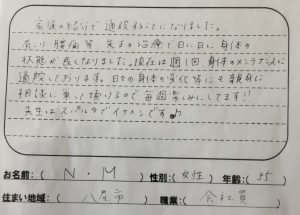 家族の紹介で通院することになりました。
肩こり 腰痛等 先生の治療で日に日に身体の
状態が良くなりました。現在は週1回 身体のメンテナンスに
通院しております。日々の身体の変化等にも親身に
相談に乗って頂けるので毎週楽しみにしてます!!
先生はスパルタでイケメンです♪
お名前:( N・M ) 性別:( 女性 ) 年齢:( 35 )
住まい地域:( 八尾市 ) 職業:( 会社員 )